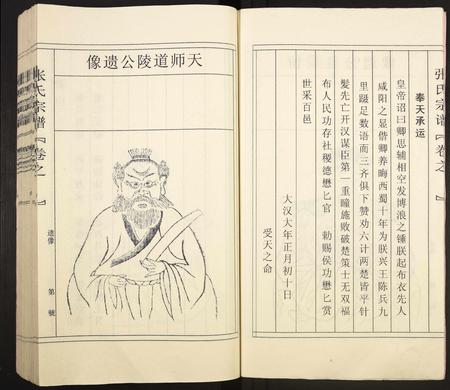 张氏宗谱『卷之一』
奉天承运
皇帝诏曰卿思辅相空发博浪之锤朕起布衣先人
咸阳之显偕卿养晦西蜀十年为朕兴王陈兵九
里蹑足数语而三齐俱下赞劝六计两楚皆平针
髪先亡开汉谋臣第一重瞳施败破楚策士无双福
布人民功存社稷德懋匕官 勅赐侯功懋匕赏
世采百邑
大汉大年正月初十日
受天之命
天师道陵公遗像
张氏宗谱『卷之一』
遗像
第 號